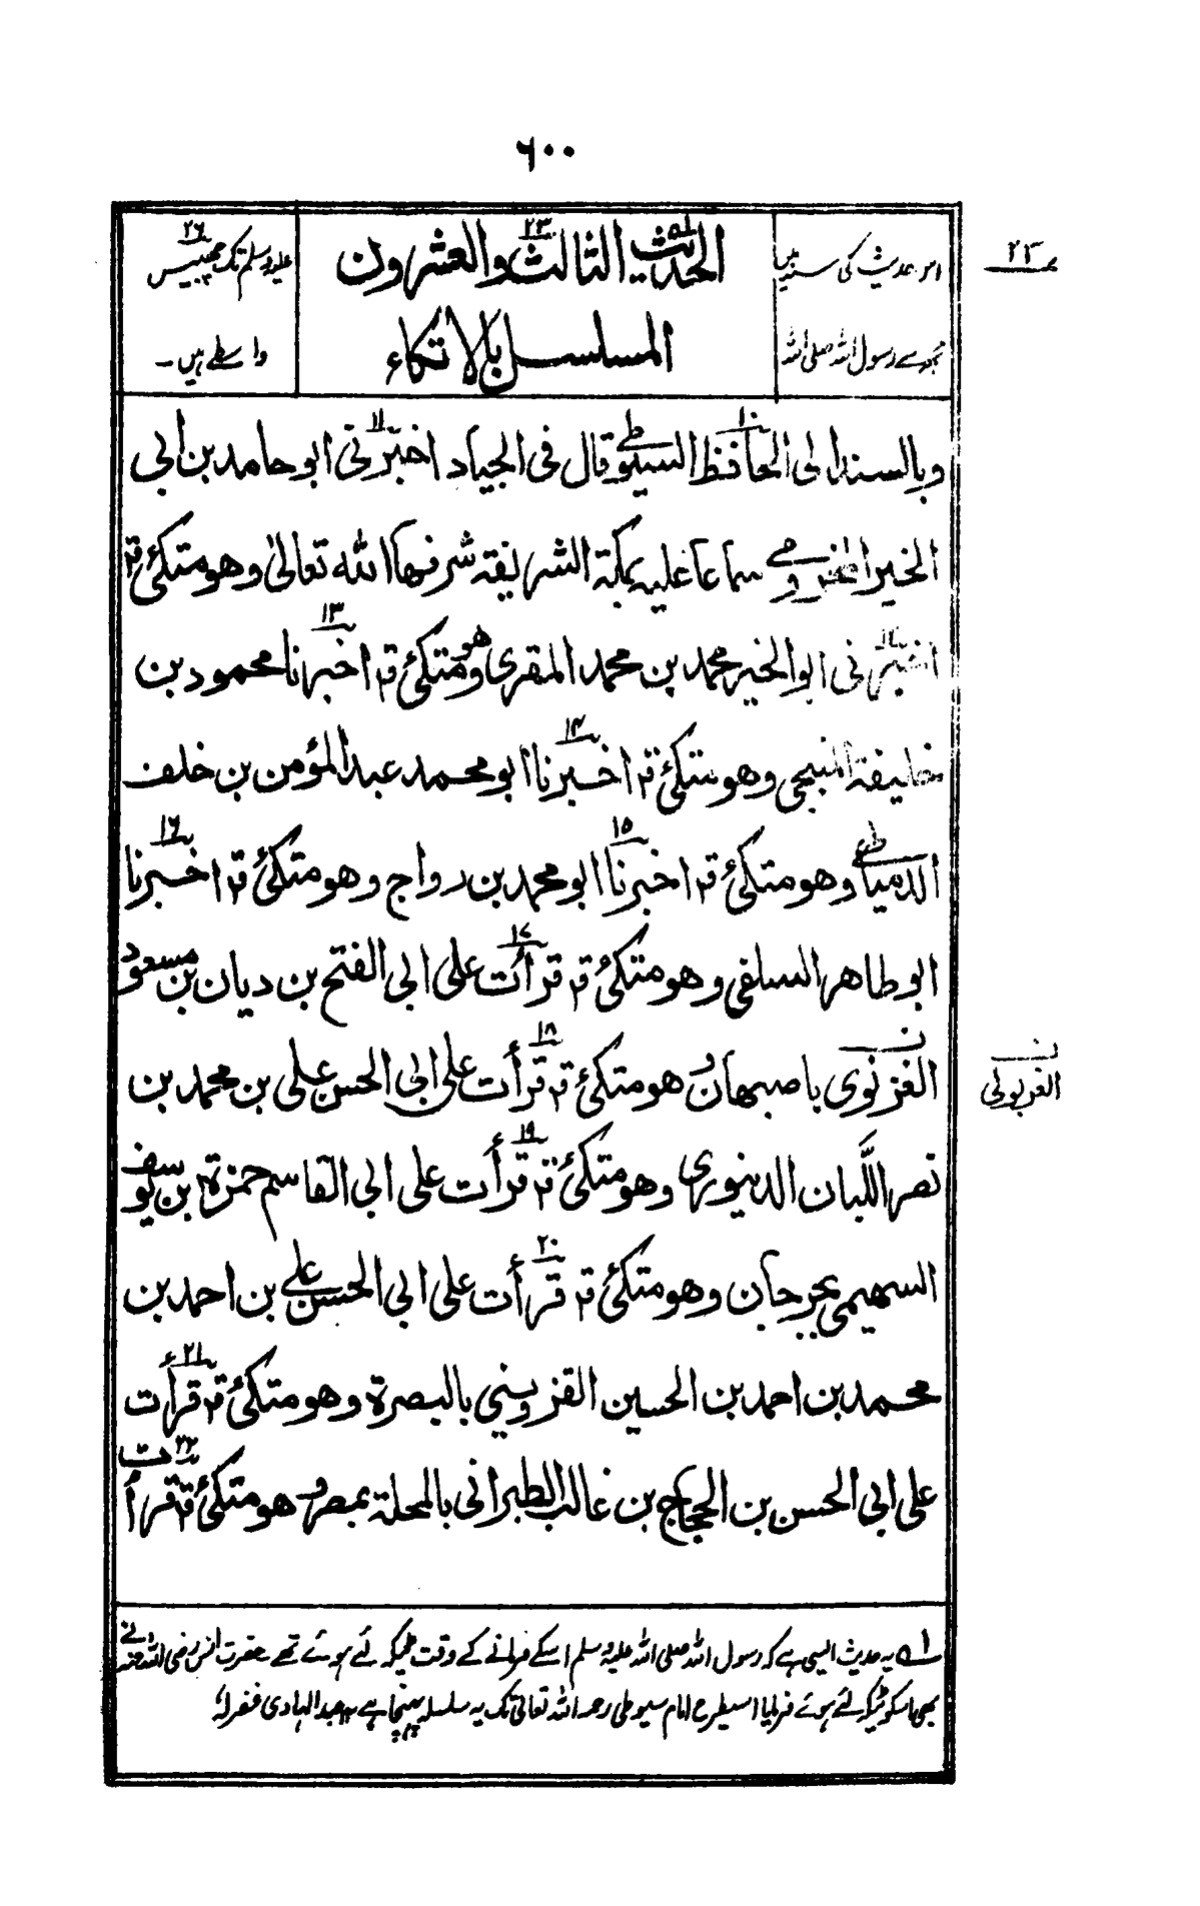 ٦٠٠
٢٣
اس حدیث کی سند میں
مجھ سے رسول اللہ صلی اللہ
الحدیث الثالث والعشرون
٢٣
المسلسل بالاتکاء
علیہ وسلم تک چھبیس
٢٦
واسطے ہیں۔
وبالسند الی الحافظ السیوطی قال فی الجیاد اخبرنی ابو حامد بن ابی
١٠ ١١
الخیر المخزومی سماعا علیہ بمکۃ الشریفۃ شرفھا اللہ تعالیٰ وھو متکئ قہ
اخبرنی ابو الخیر محمد بن محمد المقری وھو متکئ قہ اخبرنا محمود بن
١٢ ١٣
خلیفۃ المنبجی وھو متکئ قہ اخبرنا ابو محمد عبد المؤمن بن خلف
١٤
الدمیاطی وھو متکئ قہ اخبرنا ابو محمد بن رواج وھو متکئ قہ اخبرنا
١٥ ١٦
ابو طاھر السلفی وھو متکئ قہ قرأت علی ابی الفتح بن دیان بن مسعود
١٧
الغزنوی باصبھان وھو متکئ قہ قرأت علی ابی الحسن علی بن محمد بن
١٨
ن
الغربولی
نصر اللَّبان الدینوری وھو متکئ قہ قرأت علی ابی القاسم حمزۃ بن یوسف
١٩
السھیمی بجرجان وھو متکئ قہ قرأت علی ابی الحسن علی بن احمد بن
٢٠
محمد بن احمد بن الحسین القزوینی بالبصرۃ وھو متکئ قہ قرأت
٢١
علی ابی الحسن بن الحجاج بن غالب الطبرانی بالمحلۃ بمصر وھو متکئ قہ قرأت
٢٢
١ یہ حدیث ایسی ہے کہ رسول اللہ صلی اللہ علیہ وسلم اسکے فرمانے کے وقت ٹیکہ لئے ہوئے تھے حضرت انس رضی اللہ عنہ نے
بھی اسکو ٹیکہ لئے ہوئے فرمایا اسیطرح امام سیوطی رحمہ اللہ تعالیٰ تک یہ سلسلہ پہنچا ہے ١٢ عبد الہادی غفرلہٗ